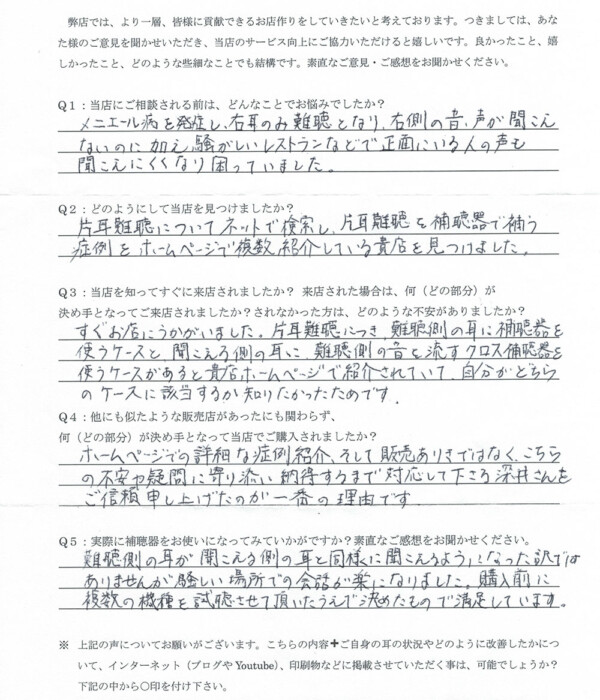 弊店では、より一層、皆様に貢献できるお店作りをしていきたいと考えております。つきましては、あな
た様のご意見を聞かせいただき、当店のサービス向上にご協力いただけると嬉しいです。良かったこと、嬉
しかったこと、どのような些細なことでも結構です。素直なご意見・ご感想をお聞かせください。
Q1：当店にご相談される前は、どんなことでお悩みでしたか？
メニエール病を発症し、右耳のみ難聴となり、右側の音、声が聞こえ
ないのに加え、騒がしいレストランなどで正面にいる人の声も
聞こえにくくなり困っていました。
Q2：どのようにして当店を見つけましたか？
片耳難聴についてネットで検索し、片耳難聴を補聴器で補う
症例をホームページで複数紹介している貴店を見つけました。
Q3：当店を知ってすぐに来店されましたか？ 来店された場合は、何（どの部分）が
決め手となってご来店されましたか？されなかった方は、どのような不安がありましたか？
すぐお店にうかがいました。片耳難聴につき、難聴側の耳に補聴器を
使うケースと、聞こえる側の耳に、難聴側の音を流すクロス補聴器を
使うケースがあると貴店ホームページで紹介されていて、自分がどちら
のケースに該当するか知りたかったためです。
Q4：他にも似たような販売店があったにも関わらず、
何（どの部分）が決め手となって当店でご購入されましたか？
ホームページでの詳細な症例紹介、そして販売ありきではなく、こちら
の不安や疑問に寄り添い納得するまで対応して下さる深井さんを
ご信頼申し上げたのが一番の理由です
Q5：実際に補聴器をお使いになってみていかがですか？素直なご感想をお聞かせください。
難聴側の耳が聞こえる側の耳と同様に聞こえるようになった訳では
ありませんが騒しい場所での会話が楽になりました。購入前に
複数の機種を試聴させて頂いたうえで決めたもので満足しています。
※ 上記の声についてお願いがございます。こちらの内容＋ご自身の耳の状況やどのように改善したかにつ
いて、インターネット（ブログやYoutube）、印刷物などに掲載させていただく事は、可能でしょうか？
下記の中から〇印を付け下さい。